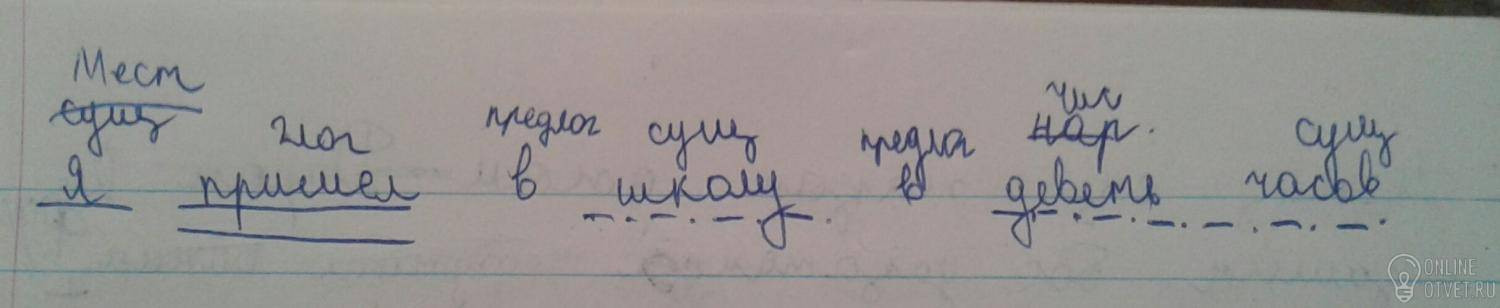 Мест
чис
сущ глаг предлог сущ предлог нар. сущ
Я пришел в школу в деветь часов
ONLINE
OTVET.RU